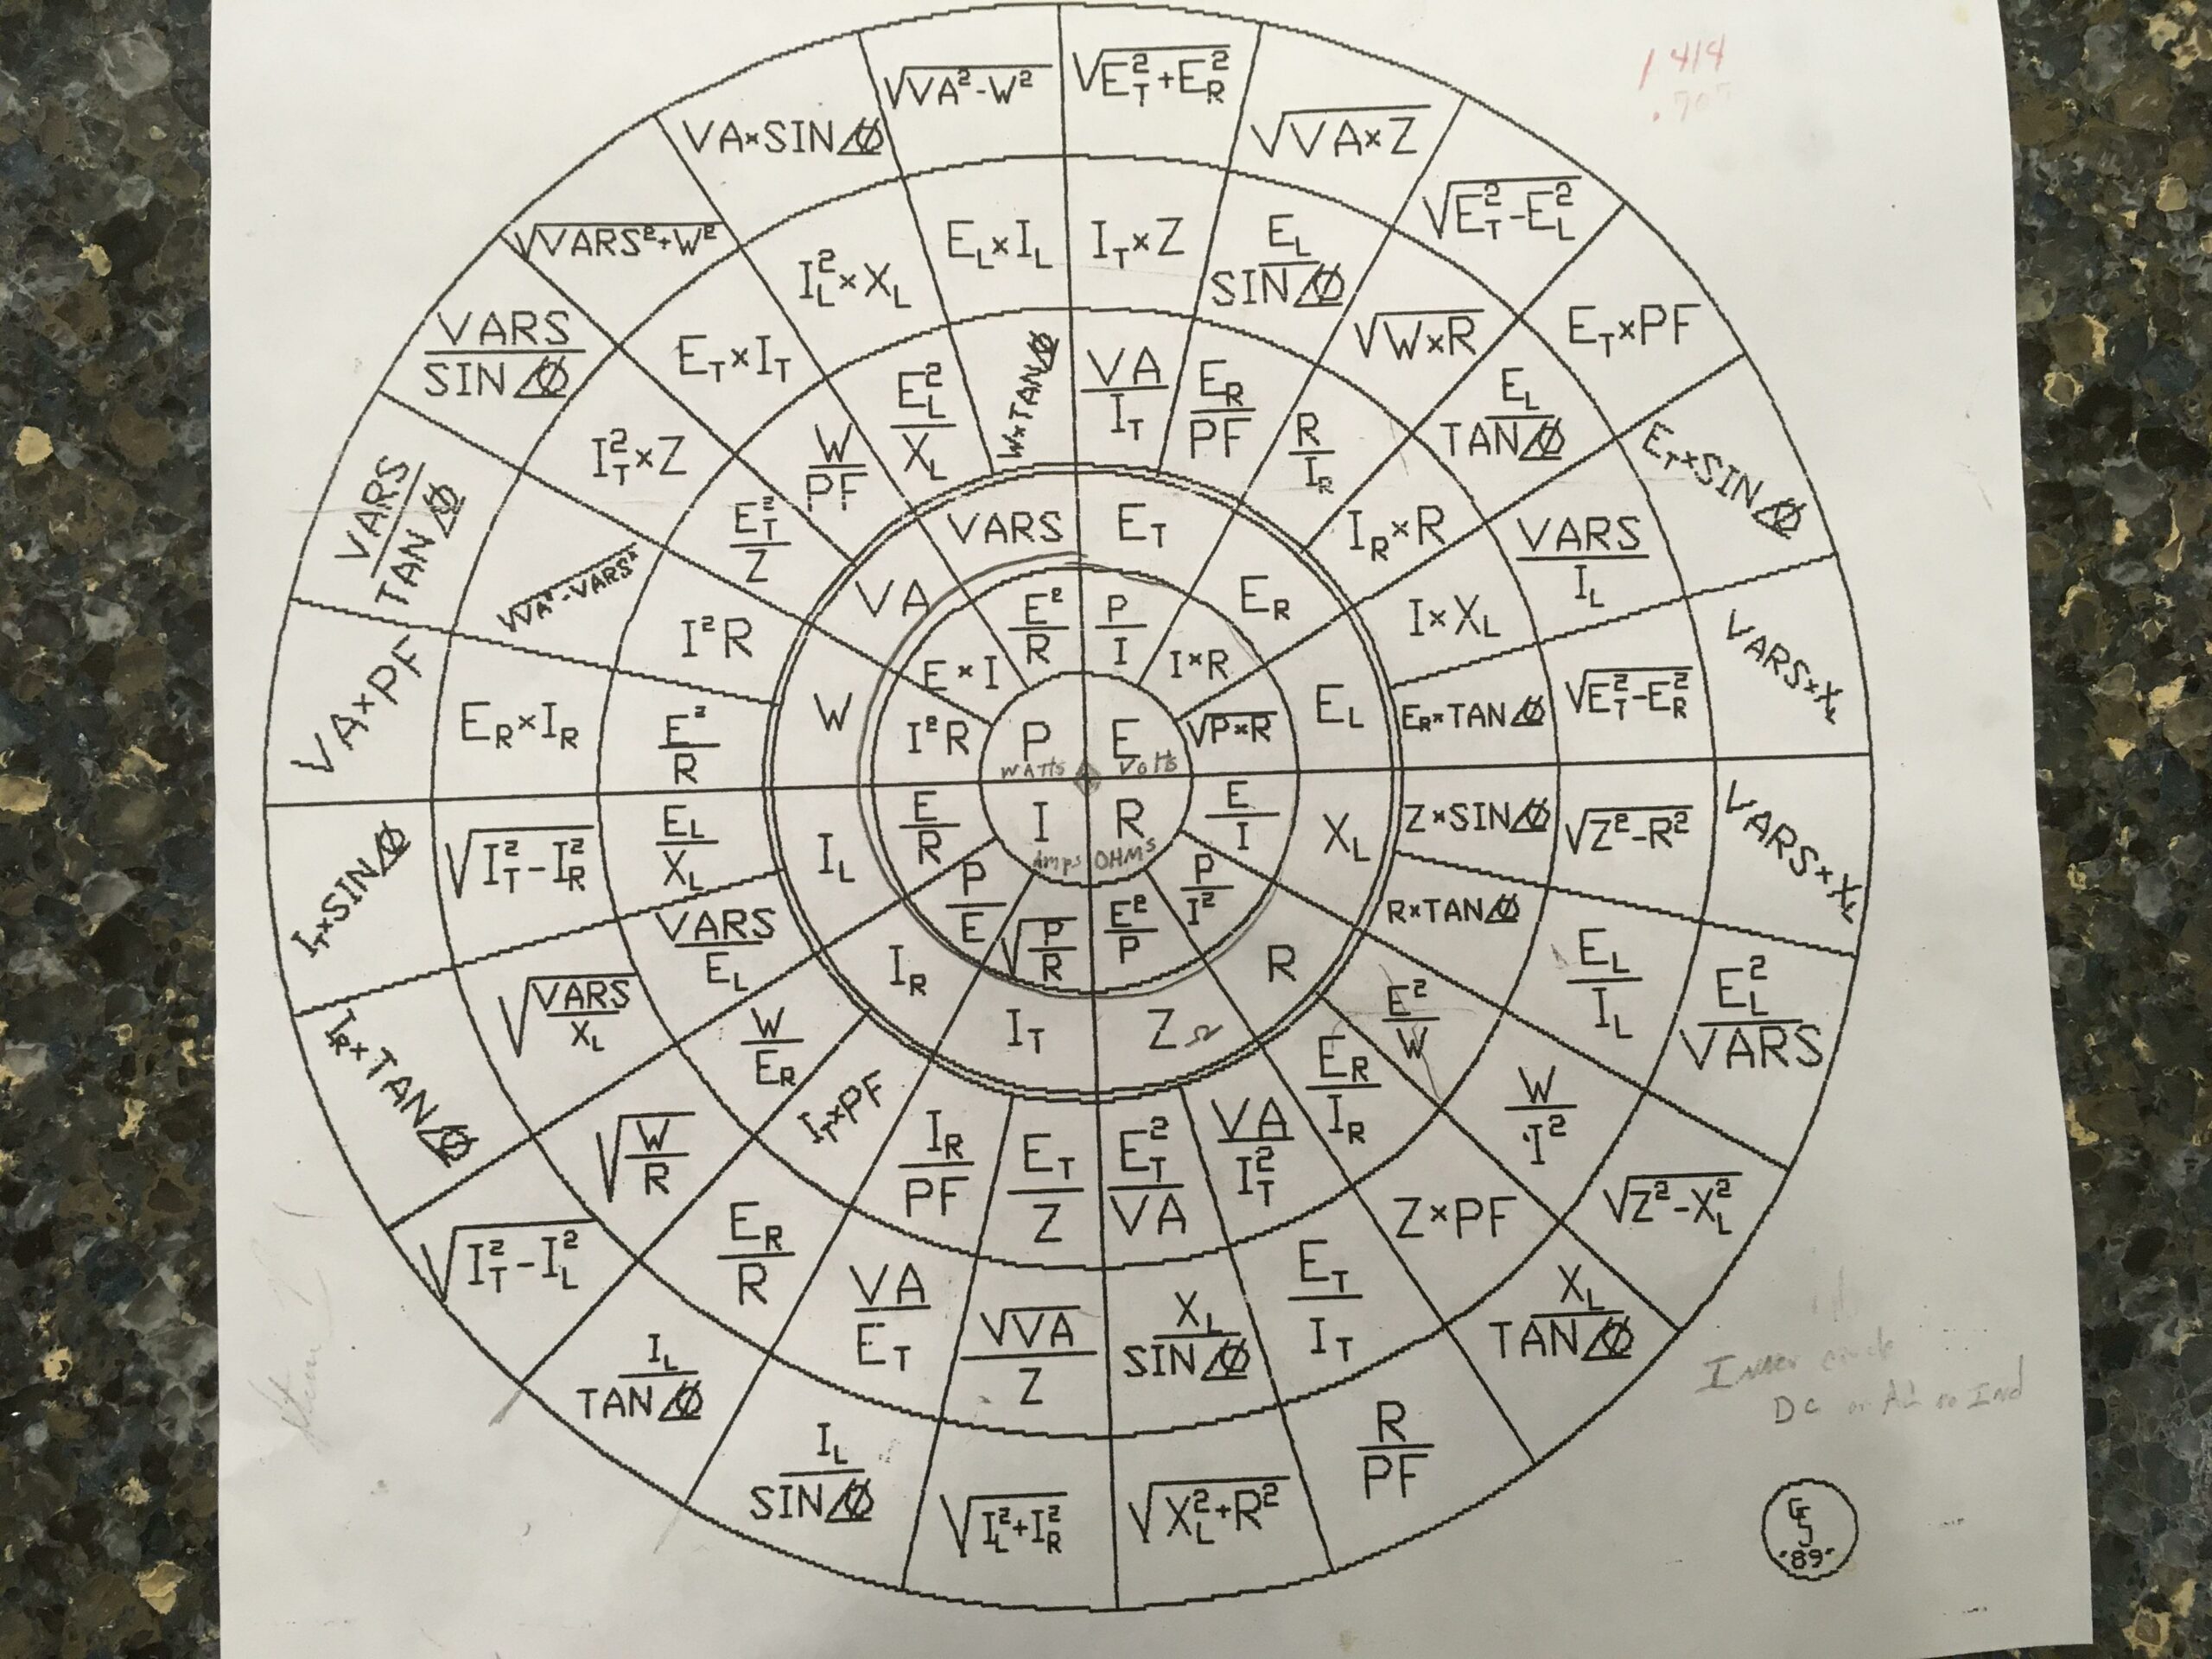 1 414
.707
√VA²-W²
√E_T²+E_R²
√VA×Z
√E_T²-E_L²
E_T×PF
E_T×SIN∠Ø
VARS×X_L
VARS×X_L
E_L²/VARS
√Z²-X_L²
X_L/TAN∠Ø
R/PF
√X_L²+R²
√I_L²+I_R²
I_L/SIN∠Ø
I_L/TAN∠Ø
√I_T²-I_L²
I_R×TAN∠Ø
I_T×SIN∠Ø
VA×PF
VARS/TAN∠Ø
VARS/SIN∠Ø
√VARS²+W²
VA×SIN∠Ø
E_L×I_L
I_T×Z
E_L/SIN∠Ø
√W×R
E_L/TAN∠Ø
VARS/I_L
√E_T²-E_R²
√Z²-R²
E_L/I_L
W/I²
Z×PF
E_T/I_T
X_L/SIN∠Ø
√VA/Z
VA/E_T
E_R/R
√W/R
√VARS/X_L
√I_T²-I_R²
E_R×I_R
√VA²-VARS²
I_T²×Z
E_T×I_T
I_L²×X_L
W×TAN∠Ø
VA/I_T
E_R/PF
R/I_R
I_R×R
I×X_L
E_R×TAN∠Ø
Z×SIN∠Ø
R×TAN∠Ø
E²/W
E_R/I_R
VA/I_T²
E_T²/VA
E_T/Z
I_R/PF
I_T×PF
W/E_R
VARS/E_L
E_L/X_L
E²/R
I²R
E_T²/Z
W/PF
E_L²/X_L
VARS
E_T
E_R
E_L
X_L
R
Z Ω
I_T
I_R
I_L
W
VA
E²/R
P/I
I×R
√P×R
E/I
P/I²
E²/P
√P/R
P/E
E/R
I²R
E×I
P
WATTS
E
Volts
I
Amps
R
OHMs
Inner circle
DC or AC no Ind
'89'